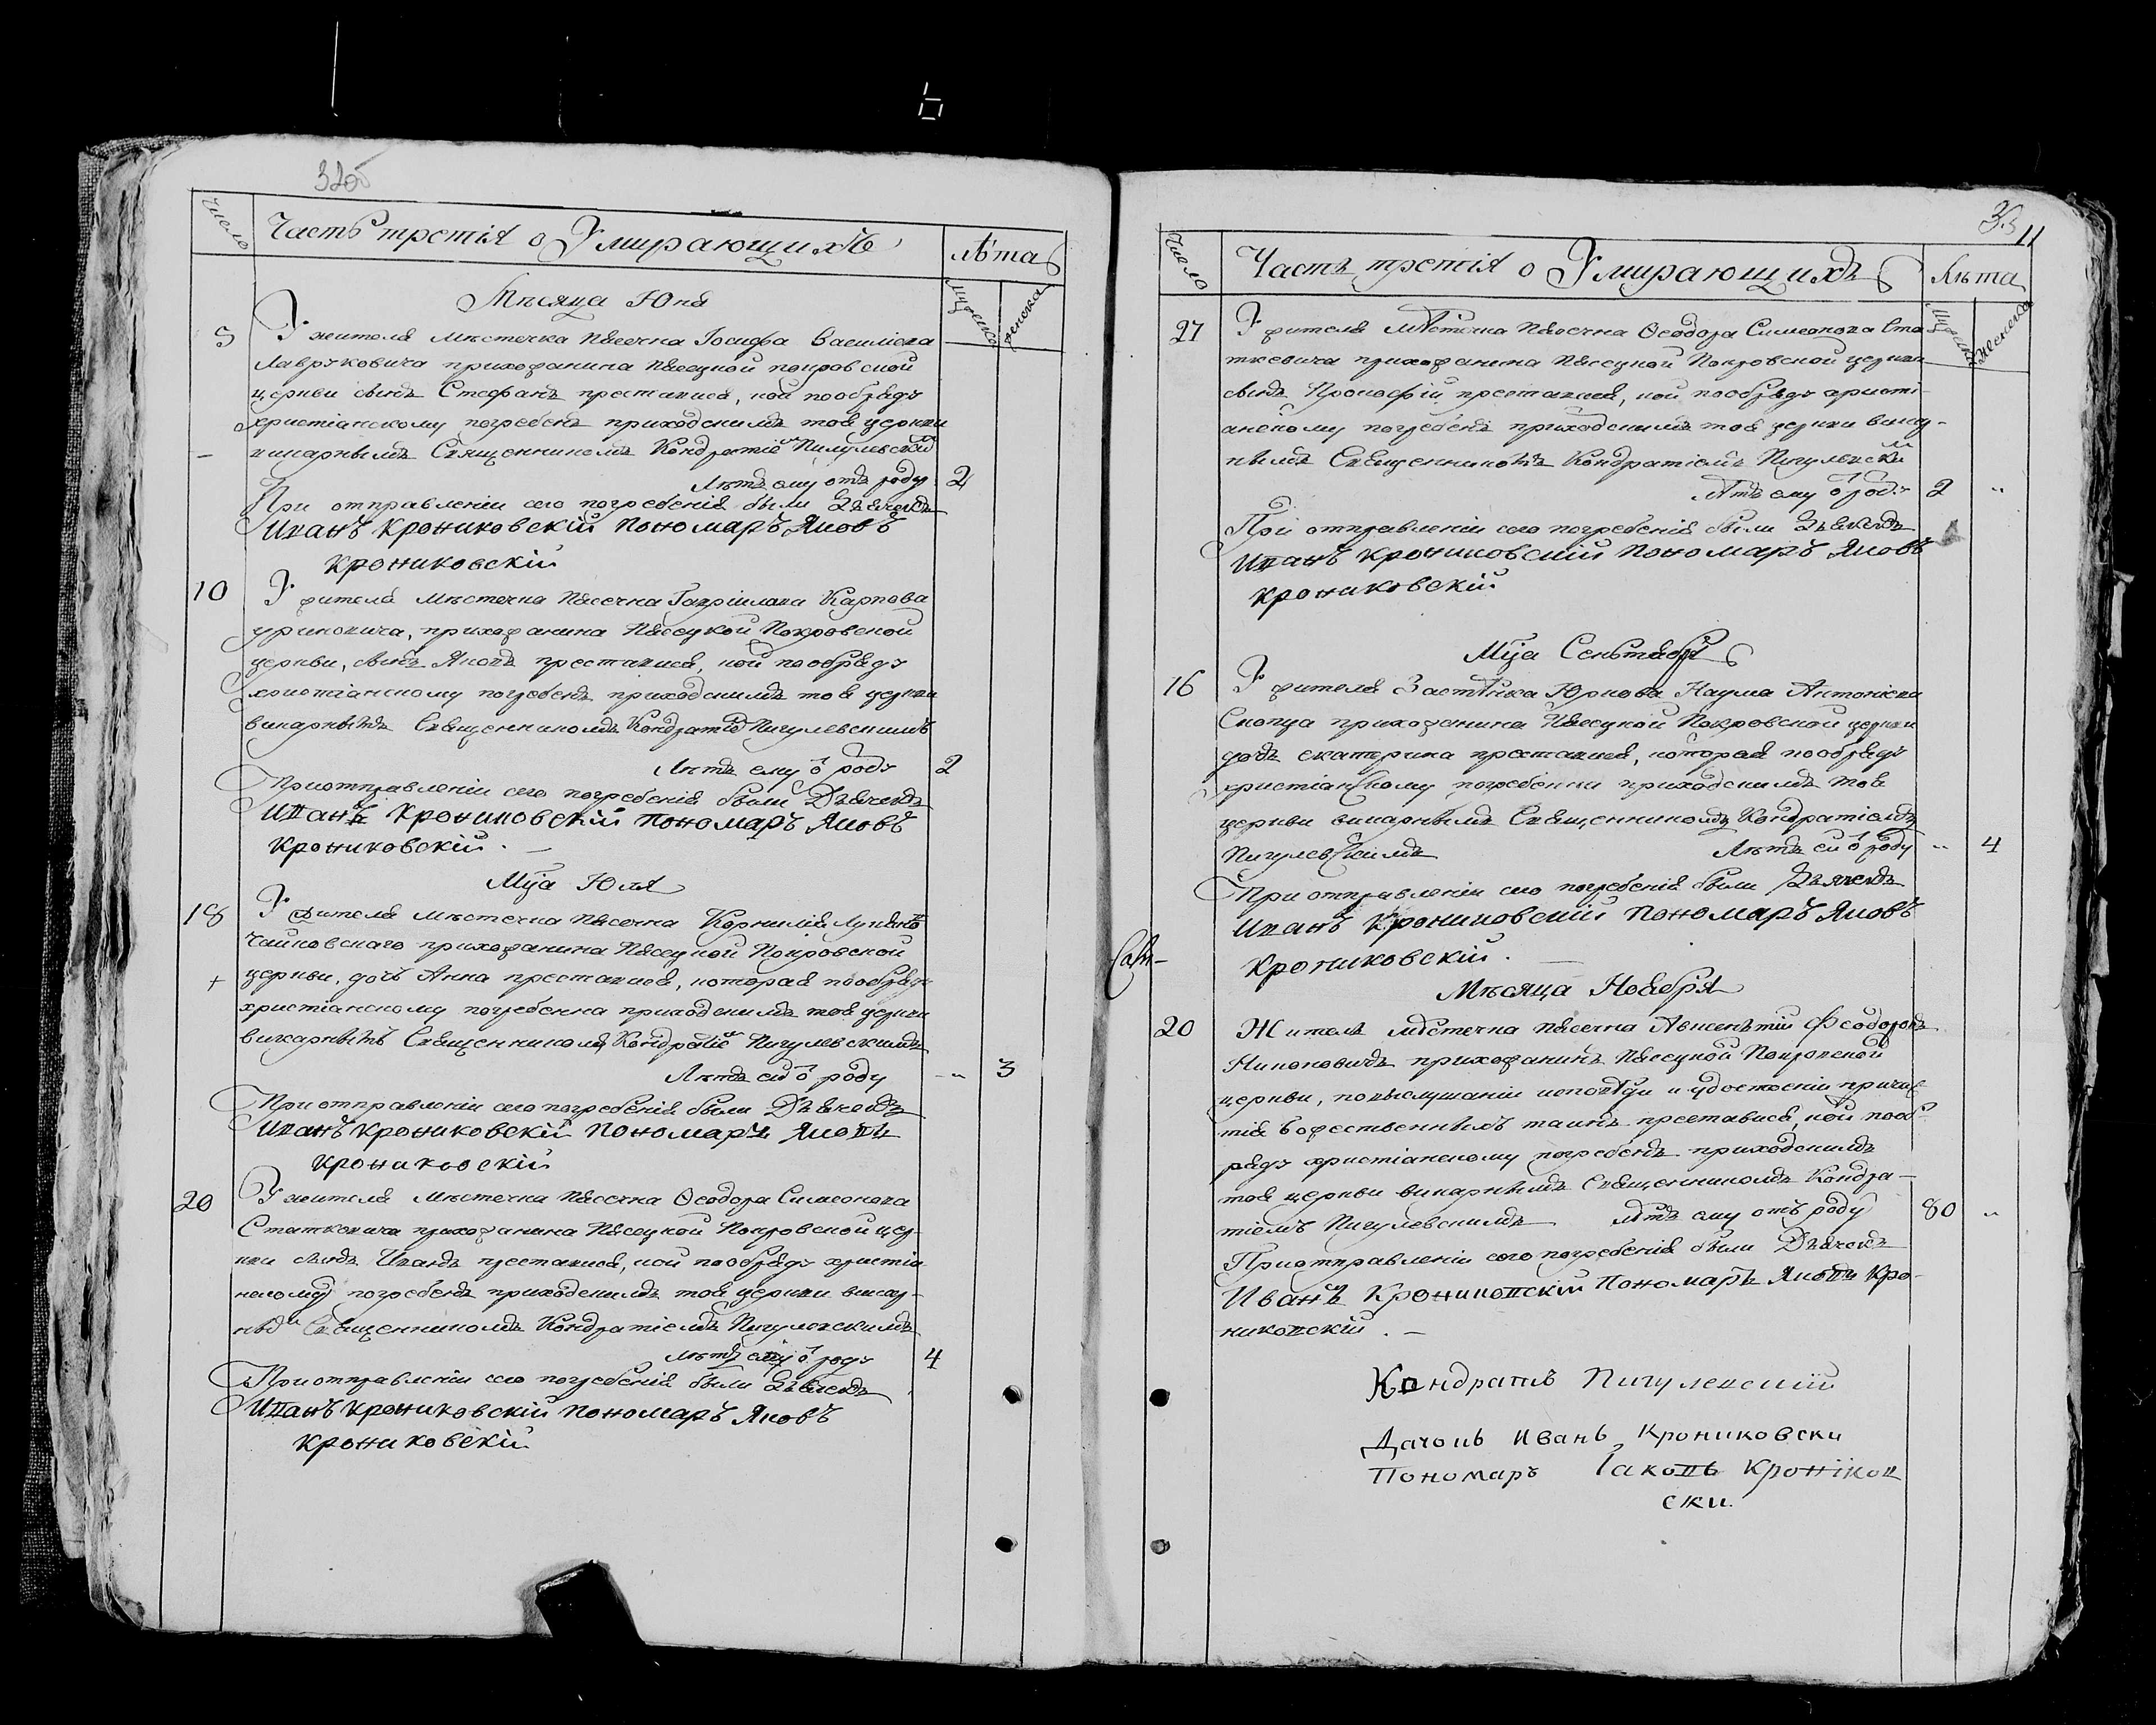 32об
Число
Часть третія о Умирающихъ
лѣта
мужеска
женска
Мѣсяца Юня
5
У жителя мѣстечка Пясечна Іосифа Василіева
Лавруковича прихожанина Пясецкой покровской
церкви сынъ Стефанъ преставися, кой пообряду
христіанскому погребенъ приходскимъ тоя церкви
викарнымъ Священникомъ Кондратіемъ Пигулевскій
Лѣтъ ему отъ роду 2
При отправленіи сего погребенія были Дьячекъ
Иванъ Крониковскій пономаръ Яковъ
Крониковскій
10
У жителя мѣстечка Пясечна Гавріилана Карпова
уриновича, прихожанина Пясецкой Покровской
церкви, сынъ Яковъ преставися, кой пообряду
христіанскому погребенъ приходскимъ тоя церкви
викарнымъ Священникомъ Кондратіе Пигулевскимъ
Лѣтъ ему ѿ роду 2
При отправленіи сего погребенія были Дьячекъ
Иванъ Крониковскій пономаръ Яковъ
Крониковскій. —
Мца Юля
18
У жителя мѣстечка Пясечна Корнилія Лукяно
Чайковскаго прихожанина Пясецкой Покровской
+ церкви, дочь Анна преставися, которая пообряду
христіанскому погребенна приходскимъ тоя церкви
викарнымъ Священникомъ Кондратіе Пигулевскимъ
Лѣтъ ей ѿ роду „ 3
При отправленіи сего погребенія были Дьячекъ
Иванъ Крониковскій пономаръ Яковъ
Крониковскій
20
У жителя мѣстечка Пясечна Ѳеодора Симеонова
Статкевича прихожанина Пясецкой Покровской цер-
кви сынъ Иванъ преставися, кой пообряду христіа
нскому погребенъ приходскимъ тоя церкви викар-
нымъ Священникомъ Кондратіемъ Пигулевскимъ
лѣтъ ему ѿ роду 4
При отправленіи сего погребенія были Дьячекъ
Иванъ Крониковскій пономаръ Яковъ
Крониковскій
33 11
Число
Часть третія о Умирающихъ
Лѣта
мужеска
женска
27
У жителя мѣстечка Пясечна Ѳеодора Симеонова Ста
ткевича прихожанина Пясецкой Покровской церкви
сынъ Прокофій преставися, кой пообряду христі
анскому погребенъ приходскимъ тоя церкви викар-
нымъ Священникомъ Кондратіемъ Пигулевскій
Лѣтъ ему ѿ роду 2 „
При отправленіи сего погребенія были Дьячекъ
Иванъ Крониковскій пономаръ Яковъ
Крониковскій
Мца Сентября
16
У жителя Застѣнка Юркова Наума Антоніева
Скопца прихожанина Пясецкой Покровской церкви
дочь екатерина преставися, которая пообряду
христіанскому погребенна приходскимъ тоя
церкви викарнымъ Священникомъ Кондратіемъ
Пигулевскимъ Лѣтъ ей ѿ роду „ 4
При отправленіи сего погребенія были Дьячекъ
Иванъ Крониковскій пономаръ Яковъ
Крониковскій. —
Мѣсяца Ноября
20
Житель мѣстечка Пясечна Авксентій Феодоровъ
Никоновичъ прихожанинъ Пясецкой Покровской
церкви, повыслушаніи исповѣди и удостоеніи причас
тія божественныхъ таинъ преставися, кой пооб
ряду христіанскому погребенъ приходскимъ
тоя церкви викарнымъ Священникомъ Кондра-
тіемъ Пигулевскимъ лѣтъ ему отъ роду 80 „
При отправленіи сего погребенія были Дьячекъ
Иванъ Крониковскій пономаръ Яковъ Кро-
никовскій. —
Кондратъ Пигулевскій
Дячокъ Иванъ Крониковски
Пономаръ Іаковъ Кроніков
ски